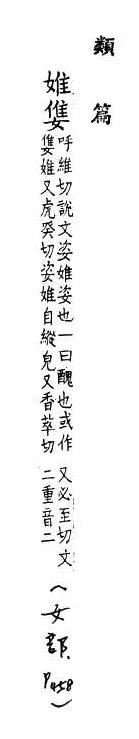 類篇
婎𡠍
呼維切說文姿婎姿也一曰醜也或作
𡠍婎又虎癸切姿婎自縱皃又香萃切
又必至切文
二重音二
(女部 P458)